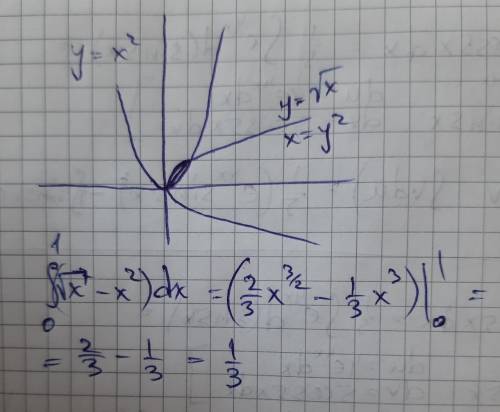 y = x²
y = √x
x = y²
∫₀¹ (√x − x²) dx = (2/3 x^(3/2) − 1/3 x³) |₀¹ =
= 2/3 − 1/3 = 1/3